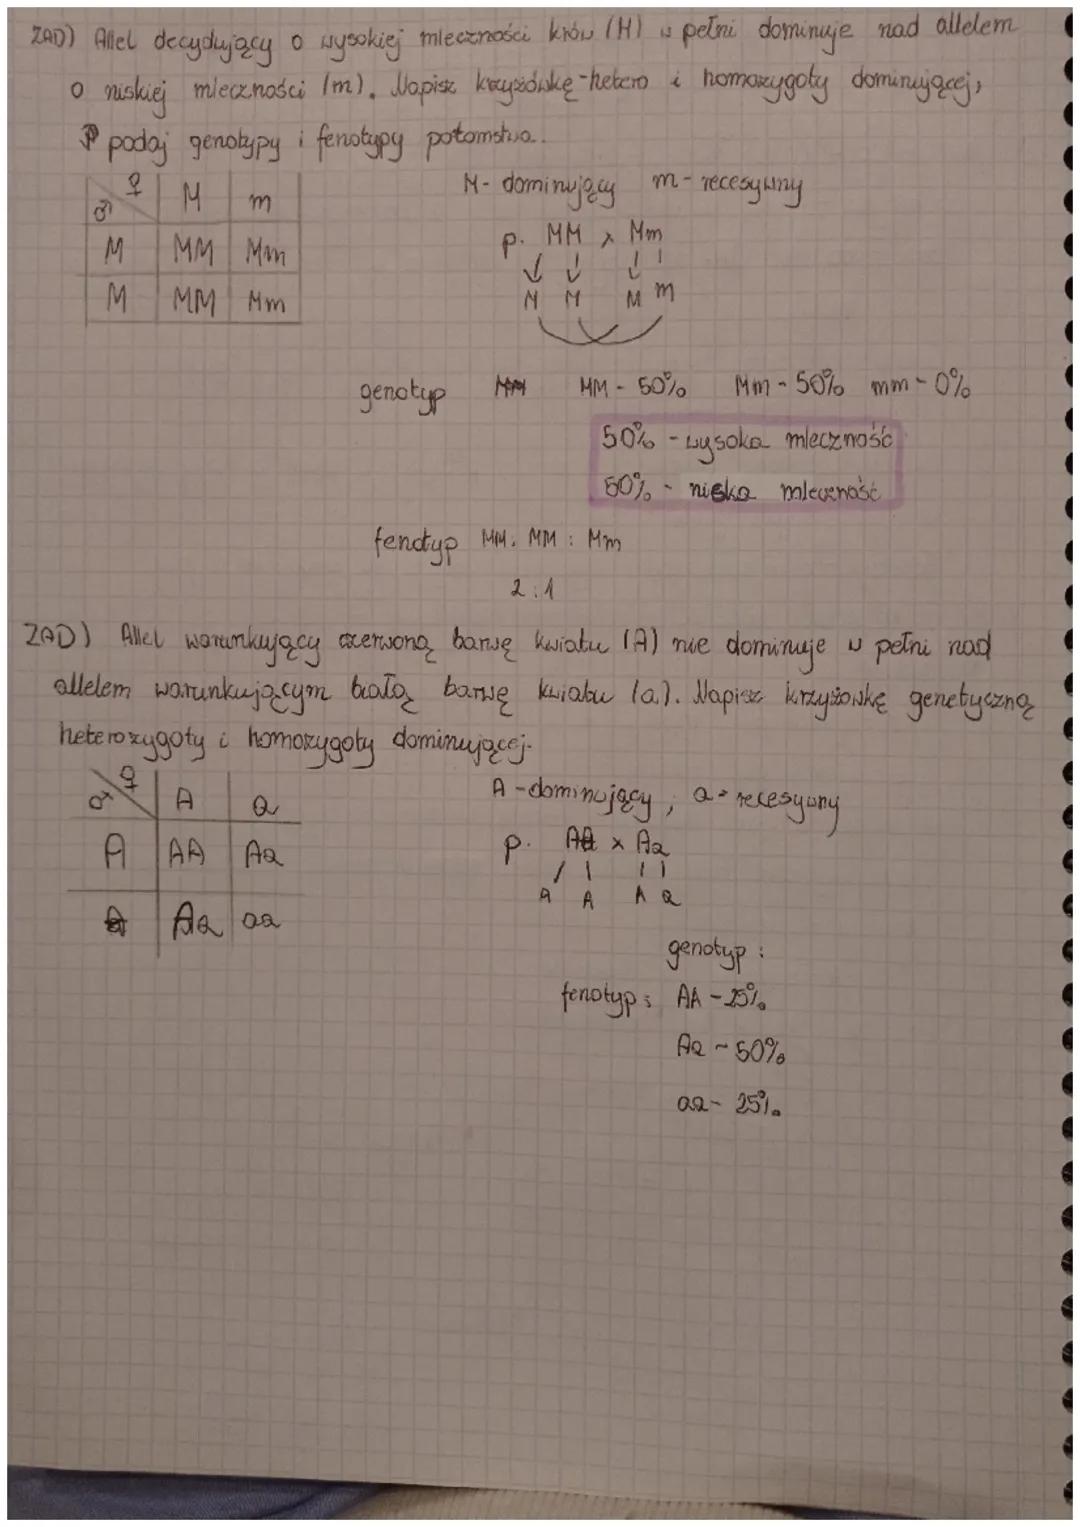 ZAD) Allel decydujący o wysokiej mleczności krów (M) w pełni dominuje nad allelem
o niskiej mleczności (m). Napisz krzyżówkę - hetero i homozygoty dominującej,
podaj genotypy i fenotypy potomstwa..
♀ M m
♂
M MM Mm
M MM Mm
M - dominujący m - recesywny
p. MM x Mm
M M M m
genotyp MM - 50% Mm - 50% mm - 0%
50% - wysoka mleczność
50% - niska mleczność
fenotyp MM. MM : Mm
2:1
ZAD) Allel warunkujący czerwoną barwę kwiatu (A) nie dominuje w pełni nad
allelem warunkującym białą barwę kwiatu (a). Napisz krzyżówkę genetyczną
heterozygoty i homozygoty dominującej.
♀ A a
♂
A AA Aa
Aa aa
A - dominujący, a - recesywny
p. AA x Aa
A A A a
genotyp :
fenotyp : AA - 25%
Aa - 50%
aa - 25%